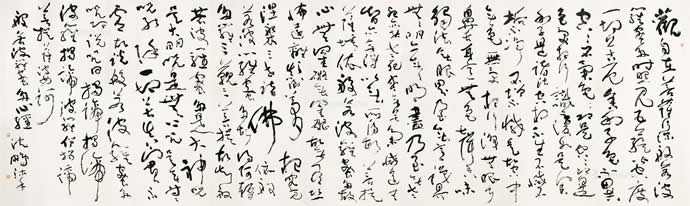 觀自在菩薩行深般若波
羅蜜多時照見五蘊皆空度
一切苦厄舍利子色不異
空空不異色色即是空空即是
色受想行識亦復如是舍
利子是諸法空相不生不滅不
垢不淨不增不減是故空
中無色無受想行識無眼耳
鼻舌身意無色聲香味
觸法無眼界乃至無意識界
無無明亦無無明盡乃至無
老死亦無老死盡無苦集滅道無
智亦無得以無所得故菩提
薩埵依般若波羅蜜多故
心無罣礙無罣礙故無有恐
怖遠離顛倒夢想究竟
涅槃三世諸佛依般
若波羅蜜多故得阿耨多
羅三藐三菩提故知般
若波羅蜜多是大神咒
是大明咒是無上咒是無等等
咒能除一切苦真實不
虛故說般若波羅蜜多
咒即說咒曰揭諦揭諦
波羅揭諦波羅僧揭諦
菩提薩婆訶
般若波羅蜜多心經 沈鵬